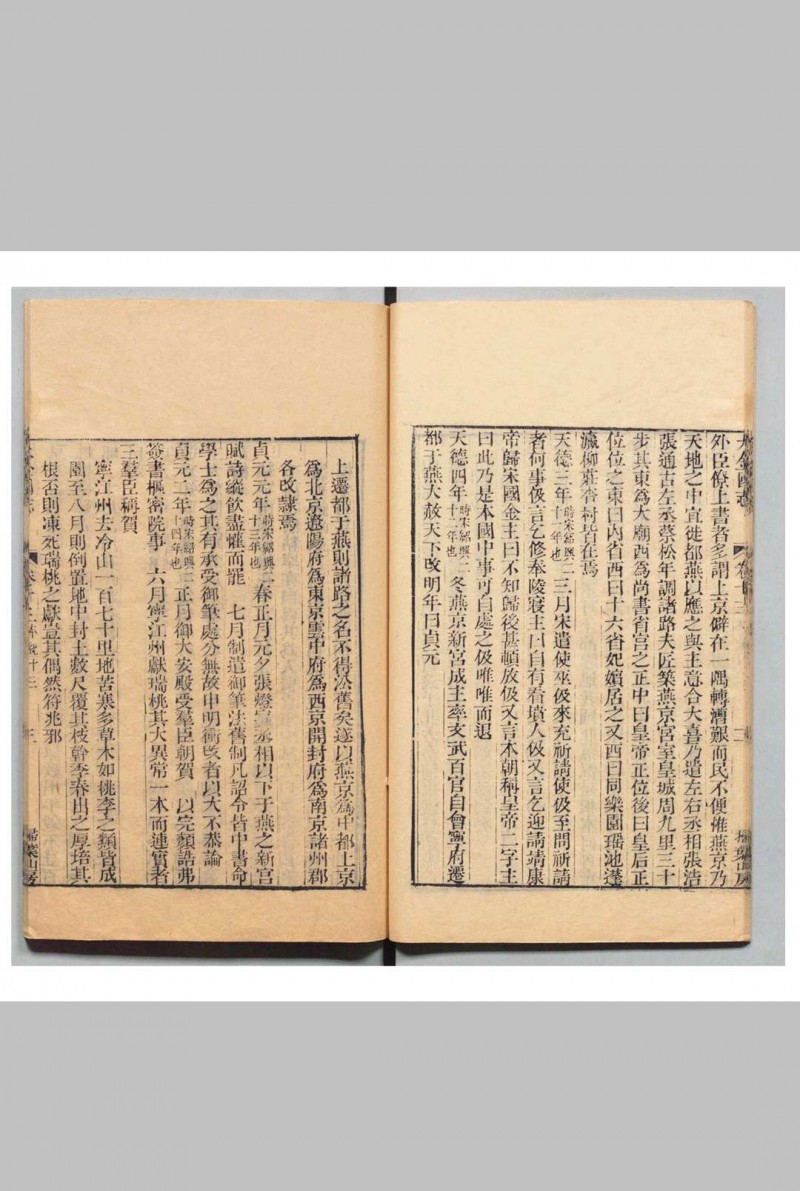 大金國志 卷十三 掃葉山房
外臣僚上書者多謂上京僻在一隅轉漕艱而民不便惟燕京乃
天地之中宜徙都燕以應之與主意合大喜乃遣左右丞相張浩
張通古左丞蔡松年調諸路夫匠築燕京宮室皇城周九里三十
步其東為太廟西為尚書省宮之正中曰皇帝正位後曰皇后正
位位之東曰內省西曰十六省妃嬪居之又西曰同樂園瑤池蓬
瀛柳莊杏村皆在焉
天德三年時宋紹興二十一年也三月宋遣使巫伋來充祈請使伋至問祈請
者何事伋言乞修奉陵寢主曰自有看墳人伋又言乞迎請靖康
帝歸宋國金主曰不知歸後甚頓放伋又言本朝稱皇帝二字主
曰此乃是本國中事可自處之伋唯唯而退
天德四年時宋紹興二十二年也冬燕京新宮成主率文武百官自會寧府遷
都于燕大赦天下改明年曰貞元
上遷都于燕則諸路之名不得沿舊矣遂以燕京為中都上京
為北京遼陽府為東京雲中府為西京開封府為南京諸州郡
各改隸焉
貞元元年時宋紹興二十三年也春正月元夕張燈丞相以下于燕之新宮
賦詩縱飲盡懽而罷 七月制遣御筆法舊制凡詔令皆中書命
學士為之其有承受御筆處分無故申明衝改者以大不恭論
貞元二年時宋紹興二十四年也正月御大安殿受羣臣朝賀 以完顏誥弗
簽書樞密院事 六月寧江州獻瑞桃其大異常一本而連實者
三羣臣稱賀
寧江州去冷山一百七十里地苦寒多草木如桃李之類皆成
園至八月則倒置地中封土數尺覆其枝幹季春出之厚培其
根否則凍死瑞桃之獻豈其偶然符兆邪
掃葉山房